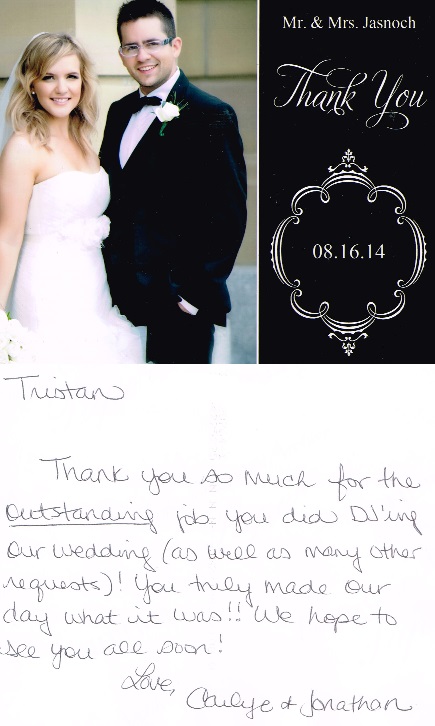 Mr. & Mrs. Jasnoch
Thank You
08.16.14
Tristan
Thank you so much for the
outstanding job you did DJ'ing
our wedding (as well as many other
requests)! You truly made our
day what it was!! We hope to
see you all soon!
Love,
& Jonathan